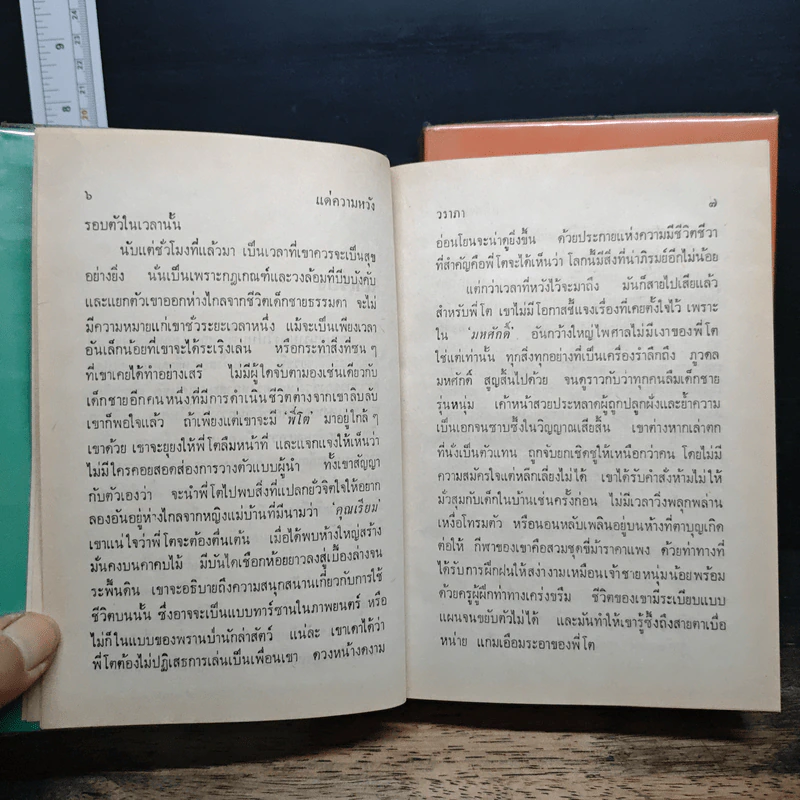 9
8
24
23
22
21
20
๖
แด่ความหวัง
รอบตัวในเวลานั้น
นับแต่ชั่วโมงที่แล้วมา เป็นเวลาที่เขาควรจะเป็นสุข
อย่างยิ่ง นั่นเป็นเพราะกฎเกณฑ์และวงล้อมที่บีบบังคับ
และแยกตัวเขาออกห่างไกลจากชีวิตเด็กชายธรรมดา จะไม่
มีความหมายแก่เขาชั่วระยะเวลาหนึ่ง แม้จะเป็นเพียงเวลา
อันเล็กน้อยที่เขาจะได้ระเริงเล่น หรือกระทำสิ่งที่ซน ๆ
ที่เขาเคยได้ทำอย่างเสรี ไม่มีผู้ใดจับตามองเช่นเดียวกับ
เด็กชายอีกคนหนึ่งที่มีการดำเนินชีวิตต่างจากเขาลิบลับ
เขาก็พอใจแล้ว ถ้าเพียงแต่เขาจะมี 'พี่โต' มาอยู่ใกล้ ๆ
เขาด้วย เขาจะยุยงให้พี่โตลืมหน้าที่ และแจกแจงให้เห็นว่า
ไม่มีใครคอยสอดส่องการวางตัวแบบผู้นำ ทั้งเขาสัญญา
กับตัวเองว่า จะนำพี่โตไปพบสิ่งที่แปลกยั่วจิตใจให้อยาก
ลองอันอยู่ห่างไกลจากหญิงแม่บ้านที่มีนามว่า 'คุณเรียม'
เขาแน่ใจว่าพี่โตจะต้องตื่นเต้น เมื่อได้พบห้างใหญ่สร้าง
มั่นคงบนคาคบไม้ มีบันไดเชือกห้อยยาวลงสู่เบื้องล่างจน
ระพื้นดิน เขาจะอธิบายถึงความสนุกสนานเกี่ยวกับการใช้
ชีวิตบนนั้น ซึ่งอาจจะเป็นแบบทาร์ซานในภาพยนตร์ หรือ
ไม่ก็ในแบบของพรานป่านักล่าสัตว์ แน่ละ เขาเดาได้ว่า
พี่โตต้องไม่ปฏิเสธการเล่นเป็นเพื่อนเขา ดวงหน้างดงาม
วราภา
๗
อ่อนโยนจะน่าดูยิ่งขึ้น ด้วยประกายแห่งความมีชีวิตชีวา
ที่สำคัญคือพี่โตจะได้เห็นว่า โลกนี้มีสิ่งที่น่าภิรมย์อีกไม่น้อย
แต่กว่าเวลาที่หวังไว้จะมาถึง มันก็สายไปเสียแล้ว
สำหรับพี่โต เขาไม่มีโอกาสชี้แจงเรื่องที่เคยตั้งใจไว้ เพราะ
ใน 'มหศักดิ์' อันกว้างใหญ่ไพศาลไม่มีเงาของพี่โต
ใช่แต่เท่านั้น ทุกสิ่งทุกอย่างที่เป็นเครื่องรำลึกถึง ภูวดล
มหศักดิ์ สูญสิ้นไปด้วย จนดูราวกับว่าทุกคนลืมเด็กชาย
รุ่นหนุ่ม เค้าหน้าสวยประหลาดผู้ถูกปลูกฝังและย้ำความ
เป็นเอกจนซาบซึ้งในวิญญาณเสียสิ้น เขาต่างหากเล่าตก
ที่นั่งเป็นตัวแทน ถูกจับยกเชิดชูให้เหนือกว่าคน โดยไม่มี
ความสมัครใจแต่หลีกเลี่ยงไม่ได้ เขาได้รับคำสั่งห้ามไม่ให้
มั่วสุมกับเด็กในบ้านเช่นครั้งก่อน ไม่มีเวลาวิ่งพลุกพล่าน
เหงื่อโทรมตัว หรือนอนหลับเพลินอยู่บนห้างที่ตาบุญเกิด
ต่อให้ กีฬาของเขาคือสวมชุดขี่ม้าราคาแพง ด้วยท่าทางที่
ได้รับการฝึกฝนให้สง่างามเหมือนเจ้าชายหนุ่มน้อยพร้อม
ด้วยครูผู้ฝึกท่าทางเคร่งขรึม ชีวิตของเขามีระเบียบแบบ
แผนจนขยับตัวไม่ได้ และมันทำให้เขารู้ซึ้งถึงสายตาเบื่อ
หน่าย แกมเอือมระอาของพี่โต